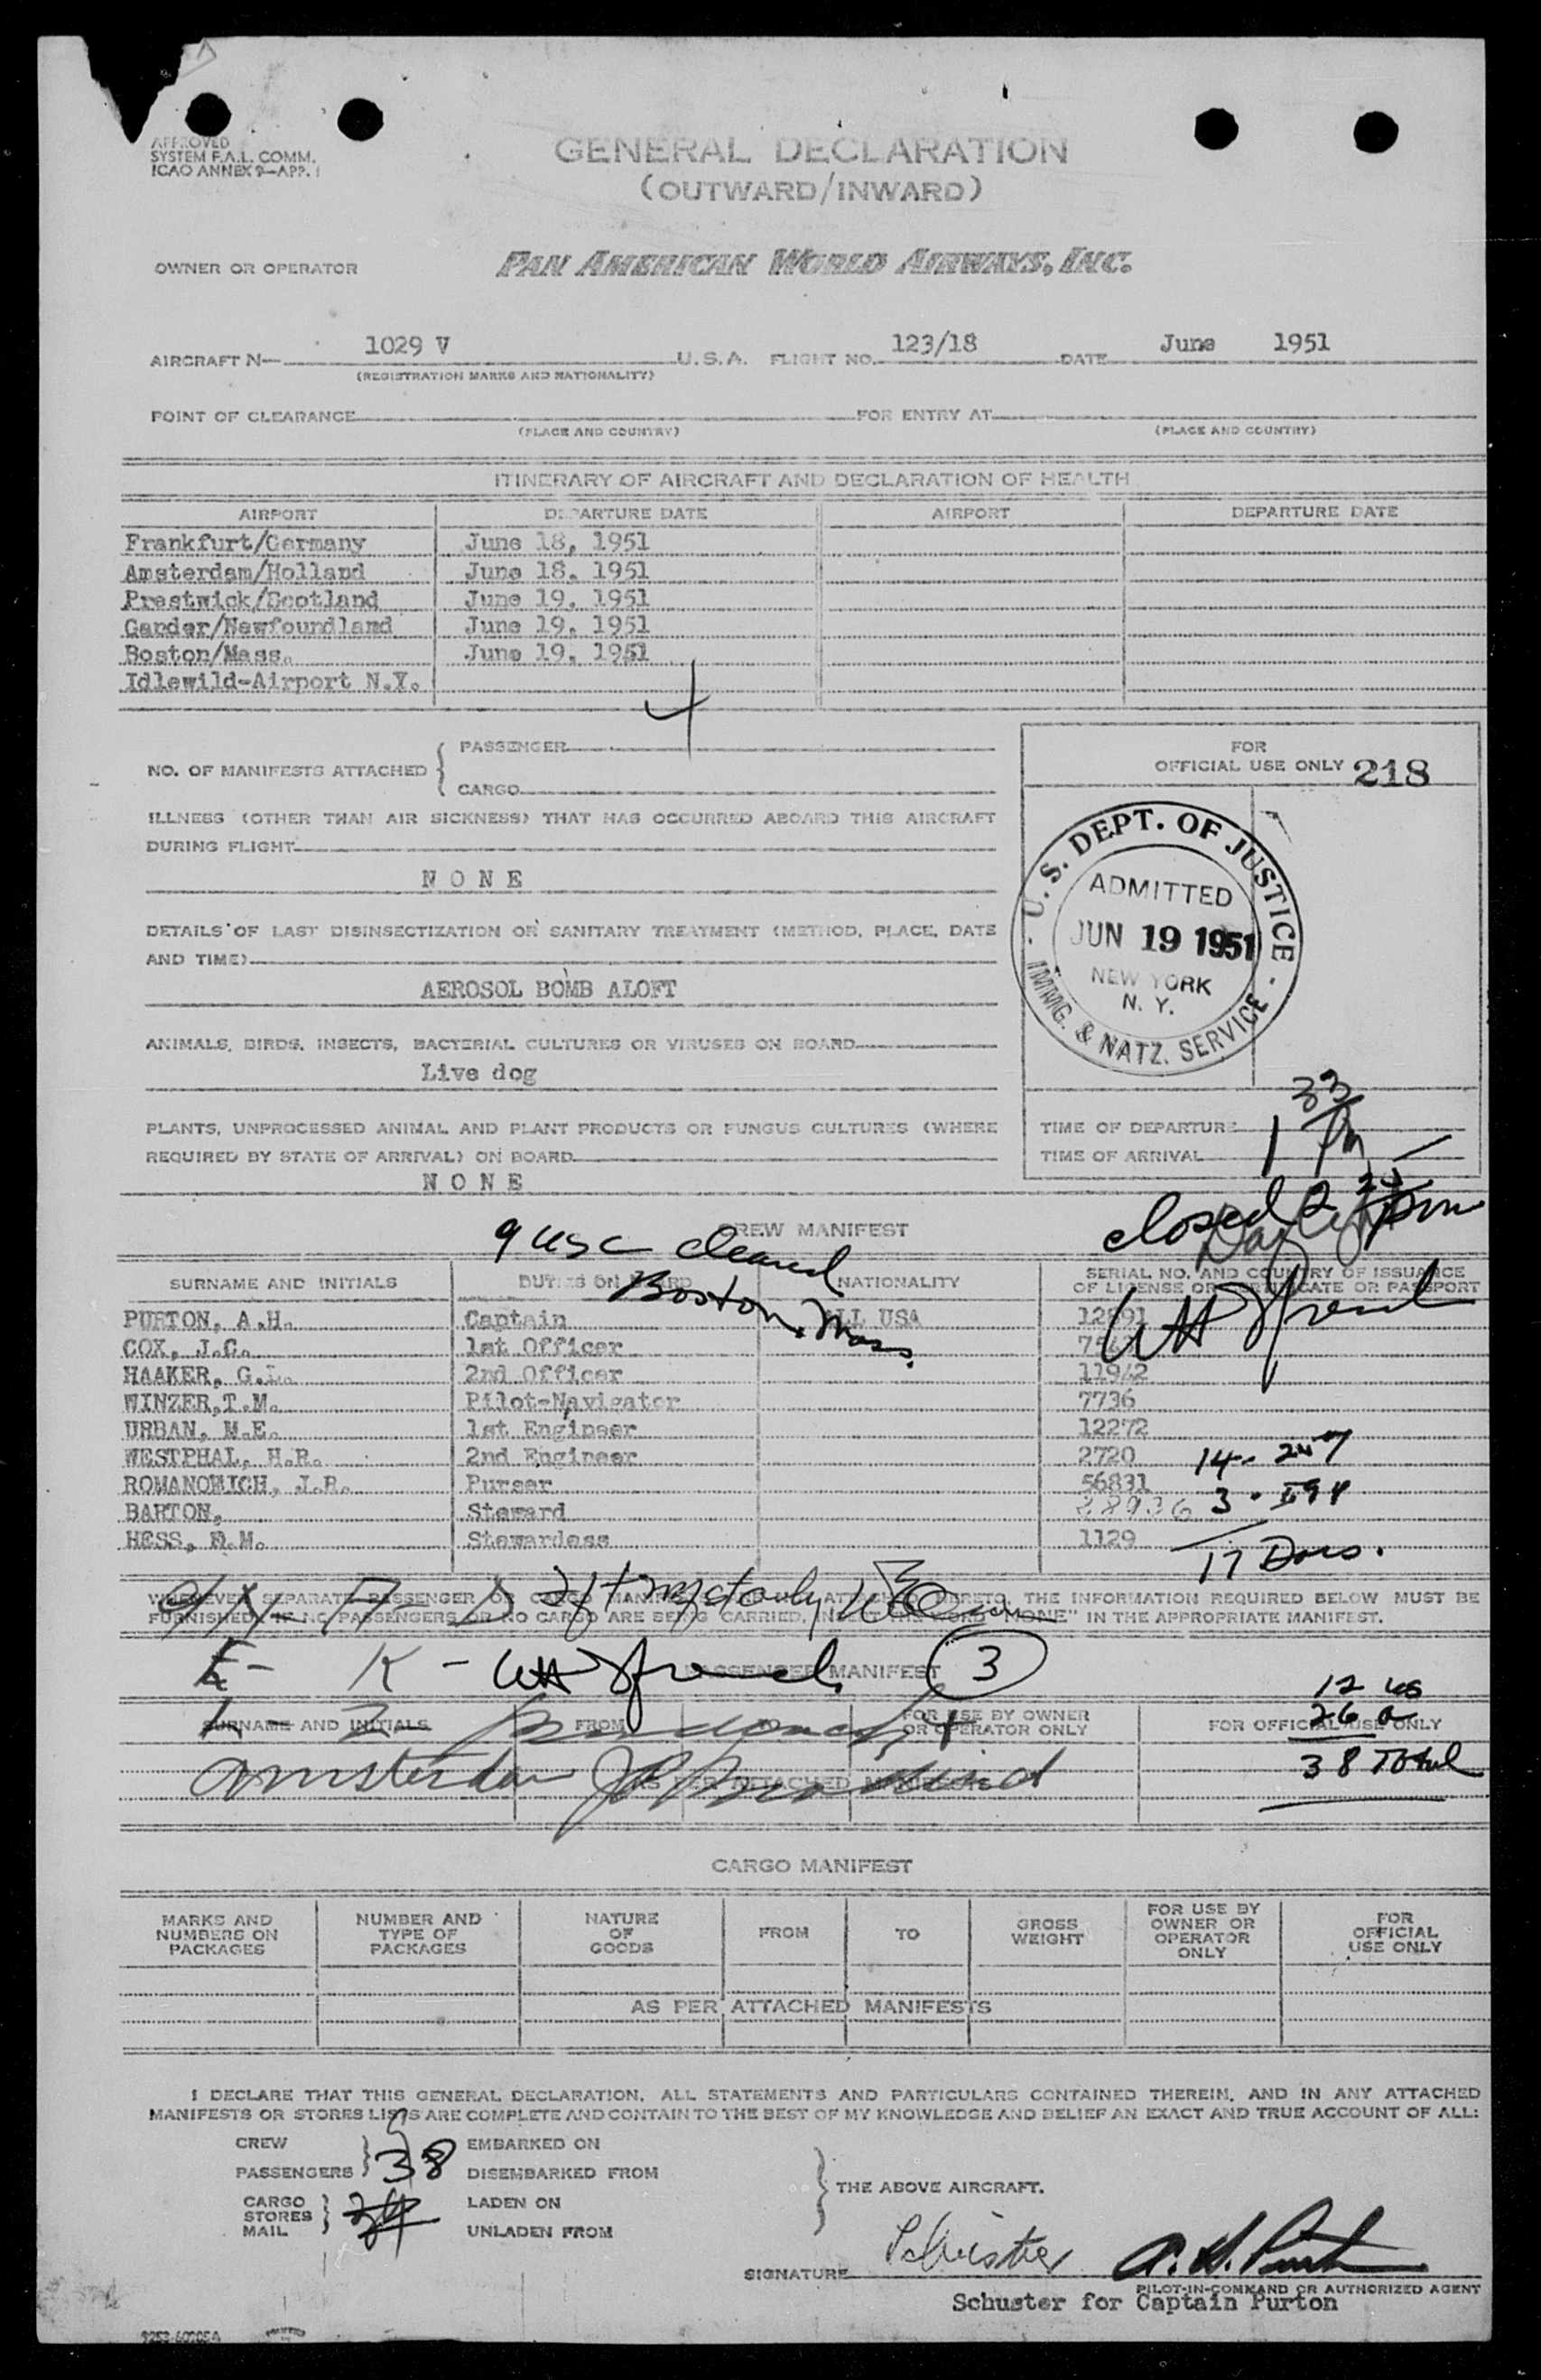 APPROVED
SYSTEM F.A.L. COMM.
ICAO ANNEX 9—APP. 1
GENERAL DECLARATION
(OUTWARD/INWARD)
OWNER OR OPERATOR PAN AMERICAN WORLD AIRWAYS, INC.
AIRCRAFT N— 1029 V U.S.A. FLIGHT NO. 123/18 DATE June 1951
(REGISTRATION MARKS AND NATIONALITY)
POINT OF CLEARANCE FOR ENTRY AT
(PLACE AND COUNTRY) (PLACE AND COUNTRY)
ITINERARY OF AIRCRAFT AND DECLARATION OF HEALTH
AIRPORT DEPARTURE DATE AIRPORT DEPARTURE DATE
Frankfurt/Germany June 18, 1951
Amsterdam/Holland June 18, 1951
Prestwick/Scotland June 19, 1951
Gander/Newfoundland June 19, 1951
Boston/Mass. June 19, 1951
Idlewild-Airport N.Y.
4
NO. OF MANIFESTS ATTACHED { PASSENGER
CARGO
FOR
OFFICIAL USE ONLY 218
ILLNESS (OTHER THAN AIR SICKNESS) THAT HAS OCCURRED ABOARD THIS AIRCRAFT
DURING FLIGHT
N O N E
DETAILS OF LAST DISINSECTIZATION OR SANITARY TREATMENT (METHOD, PLACE, DATE
AND TIME)
AEROSOL BOMB ALOFT
ANIMALS, BIRDS, INSECTS, BACTERIAL CULTURES OR VIRUSES ON BOARD
Live dog
PLANTS, UNPROCESSED ANIMAL AND PLANT PRODUCTS OR FUNGUS CULTURES (WHERE
REQUIRED BY STATE OF ARRIVAL) ON BOARD
N O N E
U. S. DEPT. OF JUSTICE
ADMITTED
JUN 19 1951
NEW YORK
N. Y.
IMMIG. & NATZ. SERVICE
TIME OF DEPARTURE
TIME OF ARRIVAL 1 33 Pm
closed 2 pm
CREW MANIFEST
9 usc cleared
Boston, Mass.
SURNAME AND INITIALS DUTIES ON BOARD NATIONALITY SERIAL NO. AND COUNTRY OF ISSUANCE
OF LICENSE OR CERTIFICATE OR PASSPORT
PURTON, A.H. Captain ALL USA 12891
COX, J.C. 1st Officer
HAAKER, G.L. 2nd Officer 11942
WINZER, T.M. Pilot-Navigator 7736
URBAN, M.E. 1st Engineer 12272
WESTPHAL, H.R. 2nd Engineer 2720
ROMANOWICH, J.R. Purser 56831
BARTON, Steward 28936
HESS, D.M. Stewardess 1129
14 - 247
3 - I94
17 Docs.
WHENEVER SEPARATE PASSENGER OR CARGO MANIFESTS ARE ATTACHED HERETO, THE INFORMATION REQUIRED BELOW MUST BE
FURNISHED. IF NO PASSENGERS OR NO CARGO ARE BEING CARRIED, INSERT THE WORD "NONE" IN THE APPROPRIATE MANIFEST.
PASSENGER MANIFEST 3
SURNAME AND INITIALS FROM TO FOR USE BY OWNER
OR OPERATOR ONLY FOR OFFICIAL USE ONLY
12 us
26 a
38 Total
Amsterdam
AS PER ATTACHED MANIFESTS
CARGO MANIFEST
MARKS AND
NUMBERS ON
PACKAGES
NUMBER AND
TYPE OF
PACKAGES
NATURE
OF
GOODS
FROM
TO
GROSS
WEIGHT
FOR USE BY
OWNER OR
OPERATOR
ONLY
FOR
OFFICIAL
USE ONLY
AS PER ATTACHED MANIFESTS
I DECLARE THAT THIS GENERAL DECLARATION, ALL STATEMENTS AND PARTICULARS CONTAINED THEREIN, AND IN ANY ATTACHED
MANIFESTS OR STORES LISTS ARE COMPLETE AND CONTAIN TO THE BEST OF MY KNOWLEDGE AND BELIEF AN EXACT AND TRUE ACCOUNT OF ALL:
CREW EMBARKED ON
PASSENGERS } 38 DISEMBARKED FROM
} THE ABOVE AIRCRAFT.
CARGO LADEN ON
STORES }
MAIL UNLADEN FROM
SIGNATURE Schuster A. H. Purton
PILOT-IN-COMMAND OR AUTHORIZED AGENT
Schuster for Captain Purton